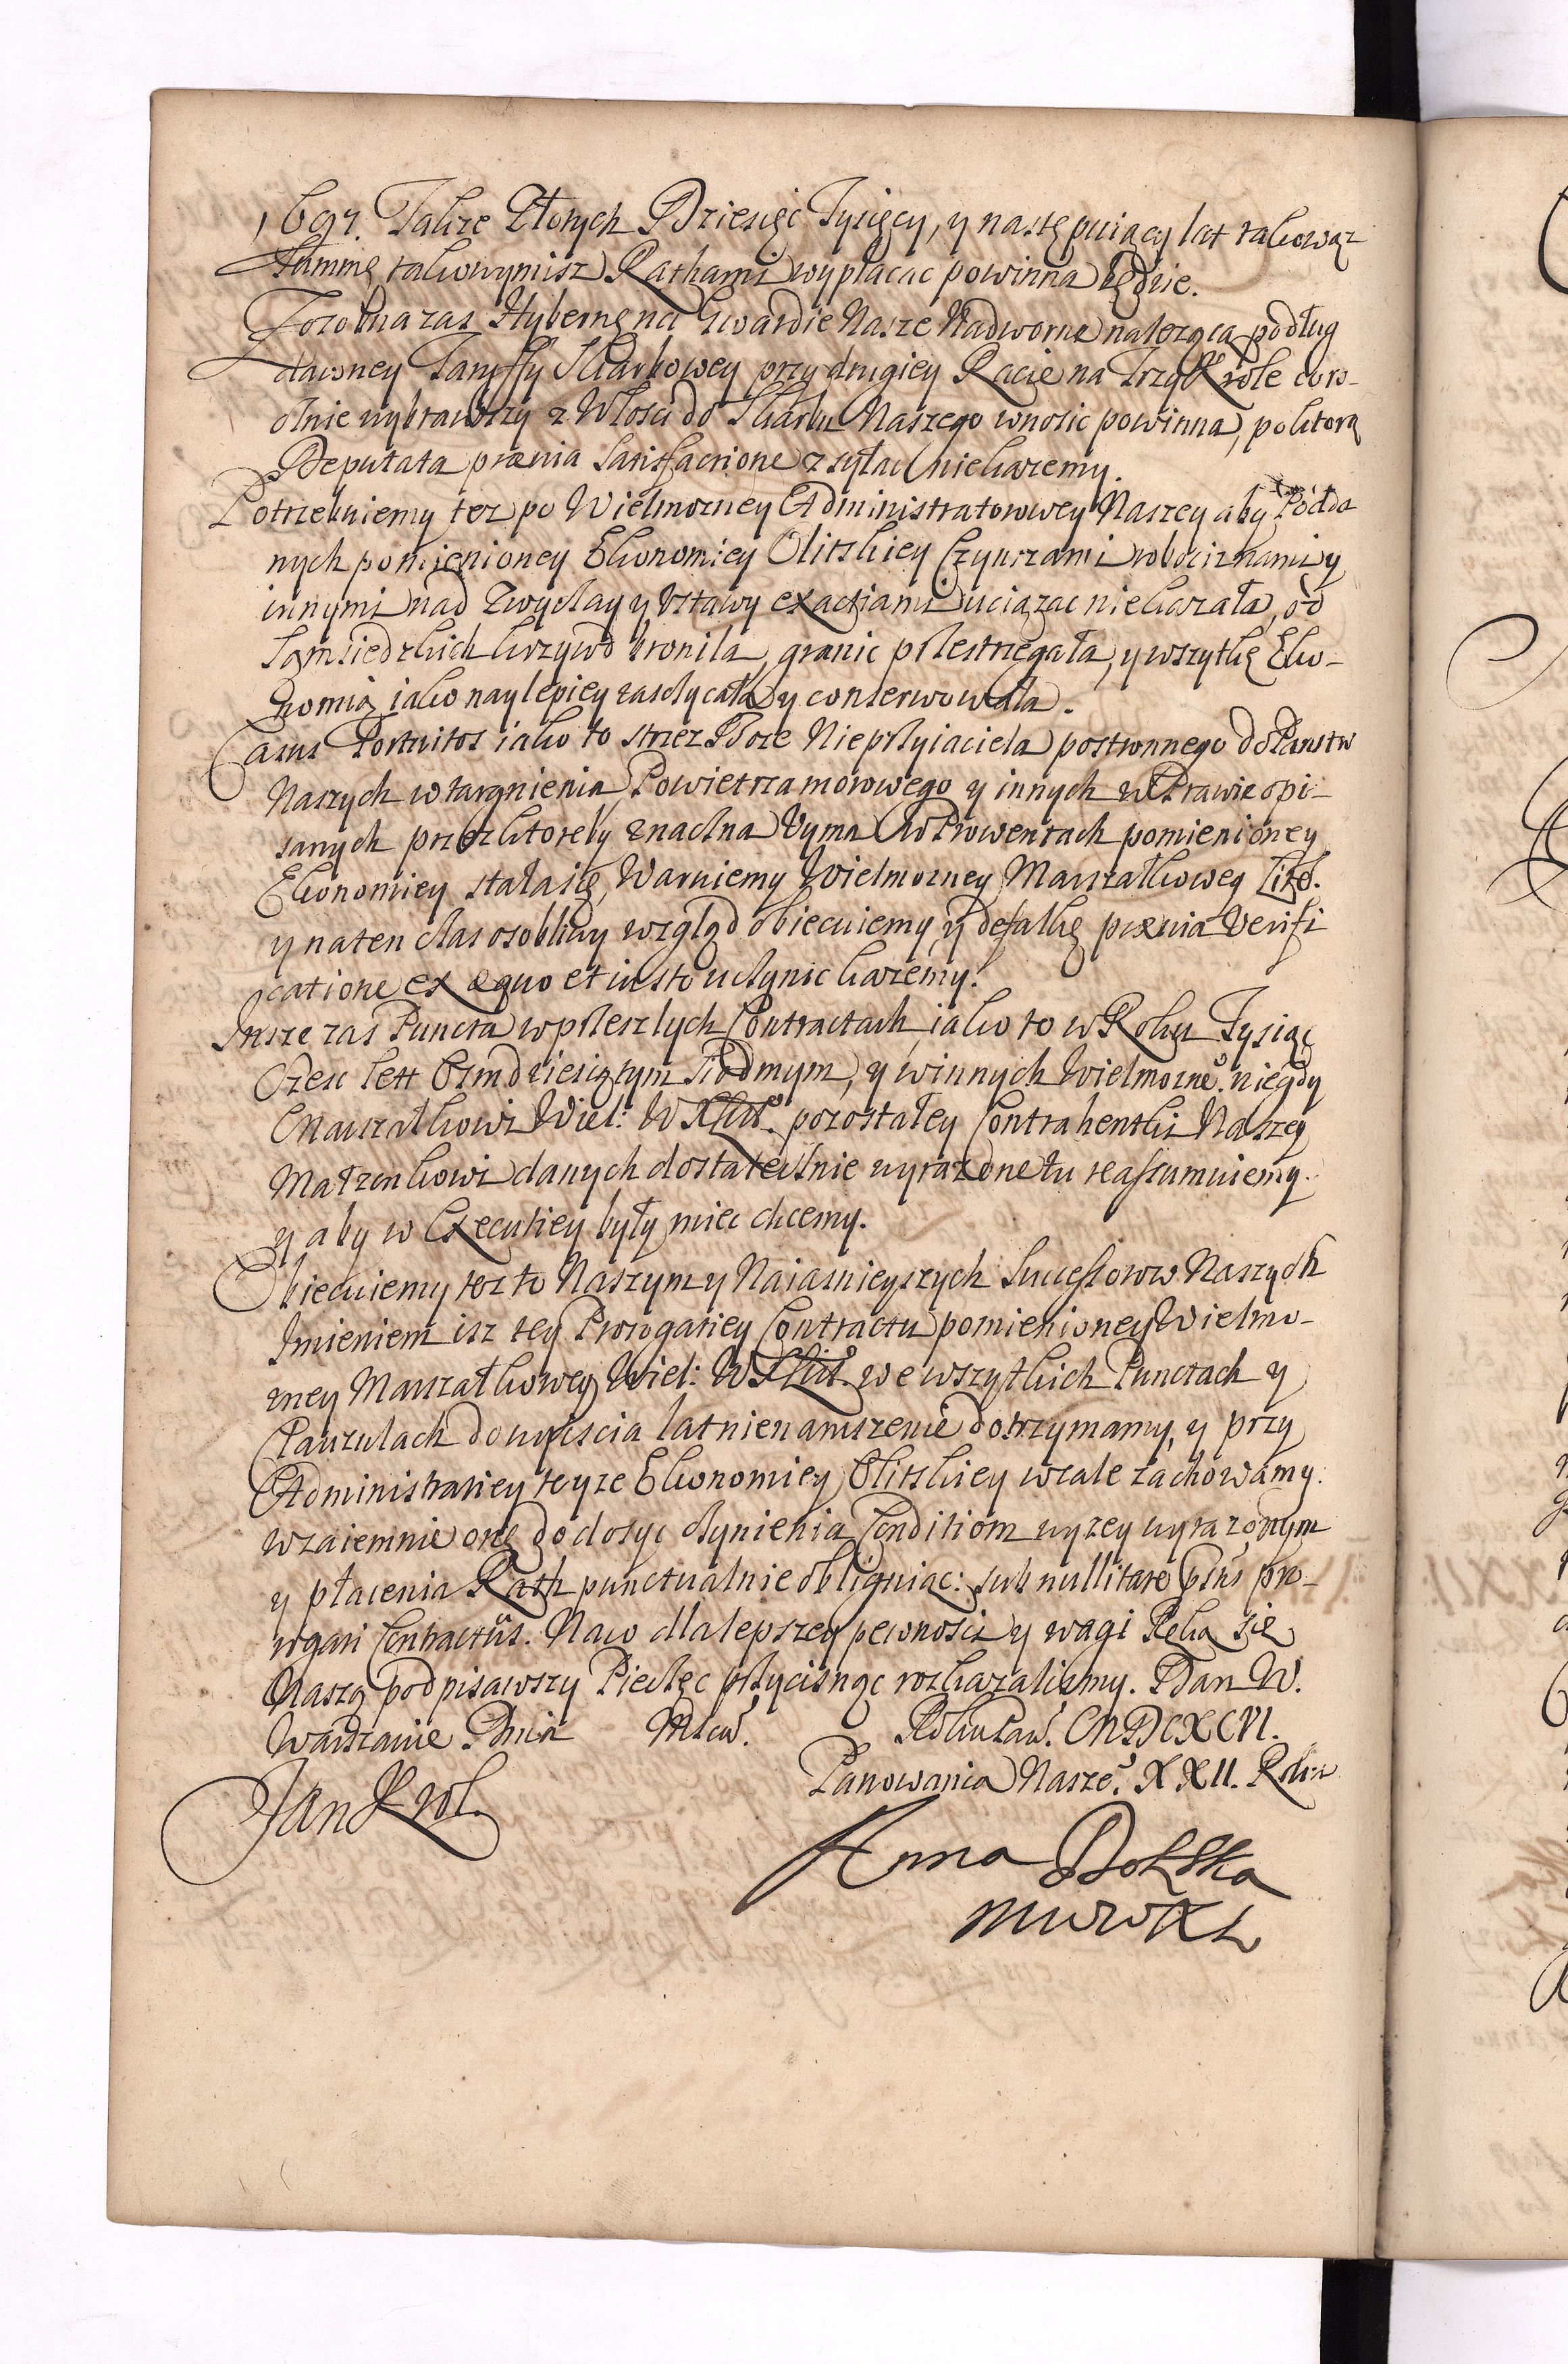 1697. Także Złotych Dziesięć Tysięcy, y następuiący lat takowąz
Summę, takowymisz Rathami wypłacac powinna będzie.
Zosobna zas Hybernę na Gwardie Nasze Nadworne nalezącą podług
dawney Taryffy Skarbowey przy drugiey Racie na Trzy Krole coro-
cznie wybrawszy z Włosci do Skarbu Naszego wnosic powinna, po ktorą
Deputata prævia Satisfactione zsyłac nie karzemy.
Potrzebuiemy tez po Wielmozney Administratorowey Naszey aby Podda
nych pomienioney Ekonomiey Olitskiey Czynszami robociznami y
innymi nad Zwyczay y Vstawy exactiami uciązac nie kazała, od
Sąmsiedzkich krzywd broniła, granic przestrzegała, y wszytkę Eko-
nomią iako naylepiey zaszczycała y conserwowała.
Casus Fortuitos iako to strzez Boze Nieprzyiaciela postronnego do Panstw
Naszych wtargnienia, Powietrza morowego y innych w Prawie opi-
sanych przez ktoreby znaczna Vyma w Prowentach pomienioney
Ekonomiey stała się, Waruiemy Wielmozney Marszałkowey Lit.
y na ten czas osobliwy wzgląd obiecuiemy, y defalkę prævia Verifi
catione ex æquo et iusto uczynic karzemy.
Insze zas Puncta w przeszłych Contractach, iako to w Roku Tysiąc
Szesc Sett Osmdziesiątym siodmym, y w innych Wielmozne. niegdy
Marszałkowi Wiel: W X Lit. pozostałey Contrahentki Naszey
Małzonkowi danych dostatecznie wyrazone tu reassumuiemy.
y aby w Executiey były miec chcemy.
Obiecuiemy tez to Naszym y Naiasnieyszych Successorow Naszych
Imieniem isz tey Prorogatiey Contractu pomienioney Wielmo-
zney Marszałkowey Wiel: W X Lit. we wszytkich Punctach y
Clauzulach do wyiscia lat nienaruszenie dotrzymamy, y przy
Administratiey teyze Ekonomiey Olitskiey wcale zachowamy.
wzaiemnie onę do dosyc czynienia Conditiom wyzey wyrazonym
y płacenia Rath punctualnie obliguiąc: sub nullitate psns pro-
rogati Contractus. Naco dla lepszey pewnosci y wagi Ręką się
Naszą podpisawszy Pieczęc przycisnąc rozkazalismy. Dan W.
Warszawie Dnia Mscã. Roku Pań. MDCXCVI.
Panowania Nasze. XXII. Roku
Jan Krol.
Anna Dolska
M W W X L